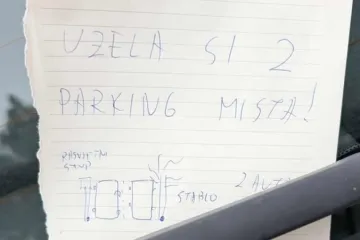 UZELA SI 2
PARKING MISTA!
STABLO
2 AUTA